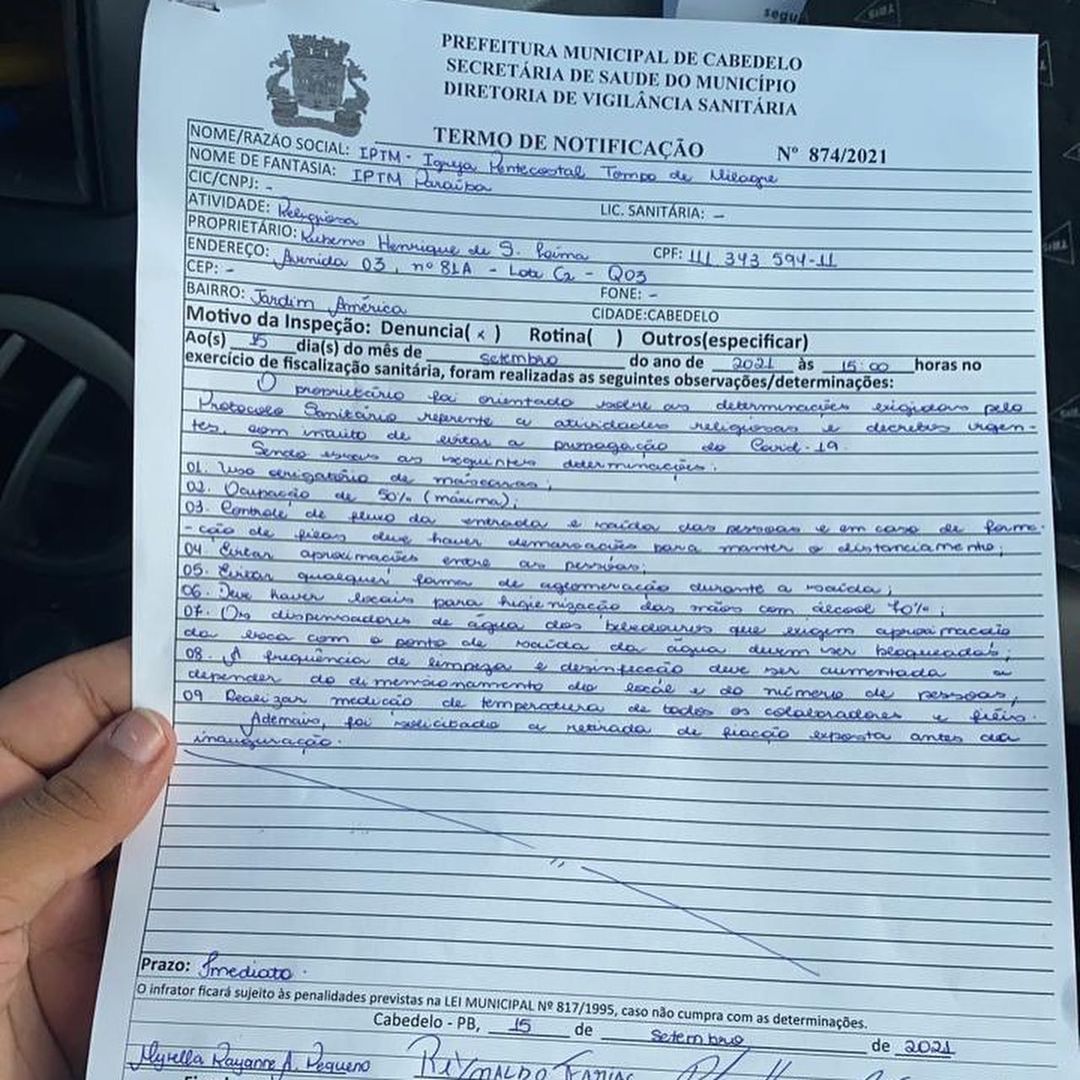 segu
PREFEITURA MUNICIPAL DE CABEDELO
SECRETÁRIA DE SAUDE DO MUNICÍPIO
DIRETORIA DE VIGILÂNCIA SANITÁRIA
TERMO DE NOTIFICAÇÃO Nº 874/2021
NOME/RAZÃO SOCIAL: IPTM - Igreja Pentecostal Tempo de Milagre
NOME DE FANTASIA: IPTM Paraíba
CIC/CNPJ: -
ATIVIDADE: Religiosa LIC. SANITÁRIA: -
PROPRIETÁRIO: Henrique de S. CPF: 111 343 594-11
ENDEREÇO: Avenida 03, nº 81A - Lote C2 - Q03
CEP: - FONE: -
BAIRRO: Jardim América CIDADE:CABEDELO
Motivo da Inspeção: Denuncia( x ) Rotina( ) Outros(especificar)
Ao(s) 15 dia(s) do mês de setembro do ano de 2021 às 15:00 horas no
exercício de fiscalização sanitária, foram realizadas as seguintes observações/determinações:
O proprietário foi orientado sobre as determinações exigidas pelo
Protocolo Sanitário referente a atividades religiosas e decretos vigen-
tes, com intuito de evitar a propagação do Covid-19.
Sendo essas as seguintes determinações:
01. Uso obrigatório de máscaras;
02. Ocupação de 50% (máxima);
03. Controle de fluxo da entrada e saída das pessoas e em caso de forma-
-ção de filas deve haver demarcações para manter o distanciamento;
04. Evitar aproximações entre as pessoas;
05. Evitar qualquer forma de aglomeração durante a saída;
06. Deve haver locais para higienização das mãos com álcool 70%;
07. Os dispensadores de água dos bebedouros que exigem aproximação
da boca com o ponto de saída da água devem ser bloqueados;
08. A frequência de limpeza e desinfecção deve ser aumentada a
depender do dimensionamento do local e do número de pessoas;
09 Realizar medição de temperatura de todos os colaboradores e fiéis.
Ademais, foi solicitado a retirada de fiação exposta antes da
inauguração.
Prazo: Imediato.
O infrator ficará sujeito às penalidades previstas na LEI MUNICIPAL Nº 817/1995, caso não cumpra com as determinações.
Cabedelo - PB, 15 de Setembro de 2021
Myrella Rayanne A. Pequeno REYNALDO FARIAS